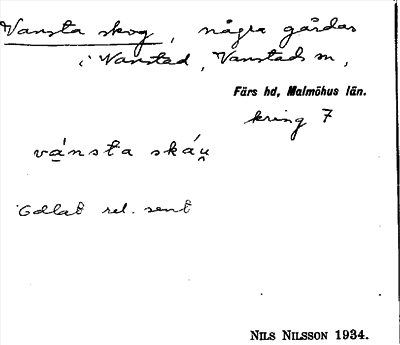 Vansta skog, några gårdar
i Vanstad, Vanstads sn,
Färs hd, Malmöhus län.
kring 7
vánsta skáu̯
Odlat rel. sent
NILS NILSSON 1934.